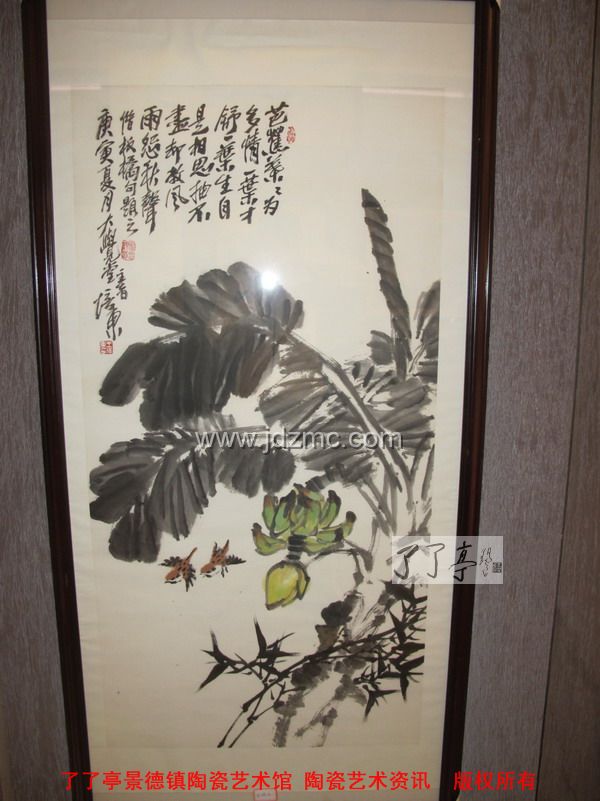 芭蕉葉〻为
多情一葉才
舒一葉生自
是相思抽不
盡却教风
雨怨秋聲
借板橋句題之
庚寅夏月
培東
www.jdzmc.com
了了亭
了了亭景德镇陶瓷艺术馆 陶瓷艺术资讯 版权所有